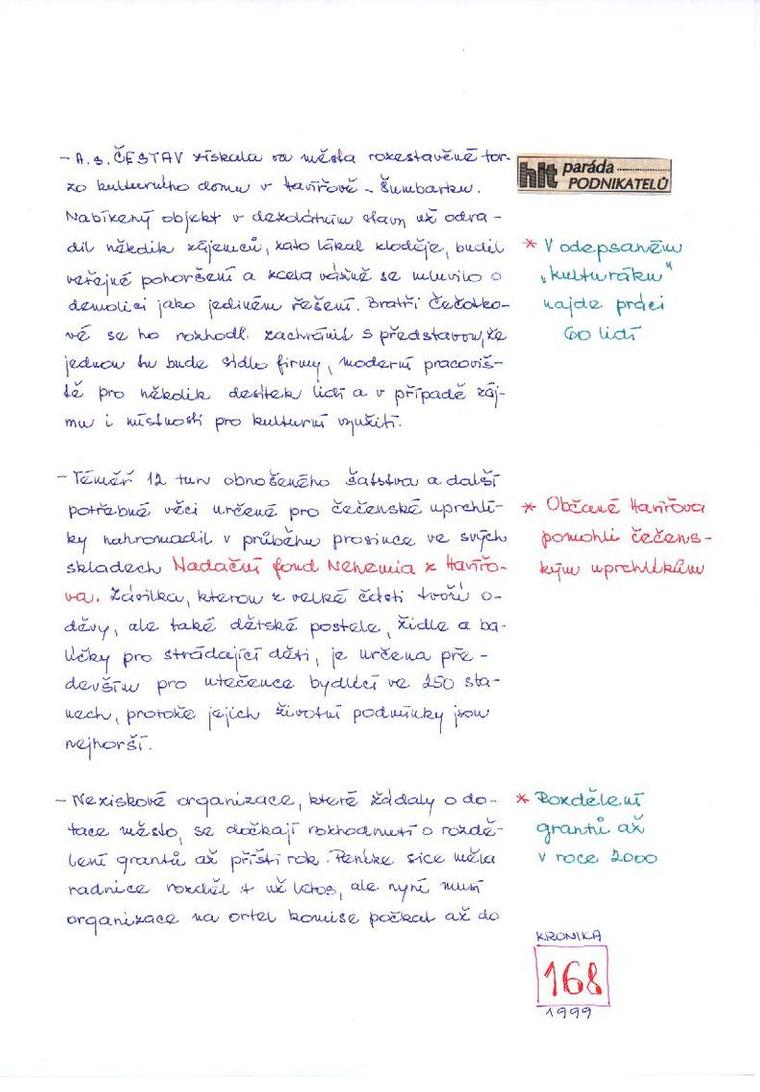 - A.s. ČESTAV získala od města rozestavěné tor-
zo kulturního domu v Havířově - Šumbarku.
Nabízený objekt v dezolátním stavu už odra-
dil několik zájemců, zato lákal zloděje, budil
veřejné pohoršení a zcela vážně se mluvilo o
demolici jako jediném řešení. Bratři Čečotko-
vé se ho rozhodl. zachránit s představou, že
jednou tu bude sídlo firmy, moderní pracoviš-
tě pro několik desítek lidí a v případě záj-
mu i místnosti pro kulturní využití.
hit paráda
PODNIKATELŮ
* V odepsaném
"kulturáku"
najde práci
60 lidí
- Téměř 12 tun obnošeného šatstva a další
potřebné věci určené pro čečenské uprchlí-
ky nahromadil v průběhu prosince ve svých
skladech Nadační fond Nehemia z Havířo-
va. Zásilka, kterou z velké části tvoří o-
děvy, ale také dětské postele, židle a ba-
líčky pro strádající děti, je určena pře-
devším pro utečence bydlící ve 250 sta-
nech, protože jejich životní podmínky jsou
nejhorší.
* Občané Havířova
pomohli čečens-
kým uprchlíkům
- Neziskové organizace, které žádaly o do-
tace město, se dočkají rozhodnutí o rozdě-
lení grantů až příští rok. Peníze sice měla
radnice rozdělit už letos, ale nyní musí
organizace na ortel komise počkat až do
* Rozdělení
grantů až
v roce 2000
KRONIKA
168
1999